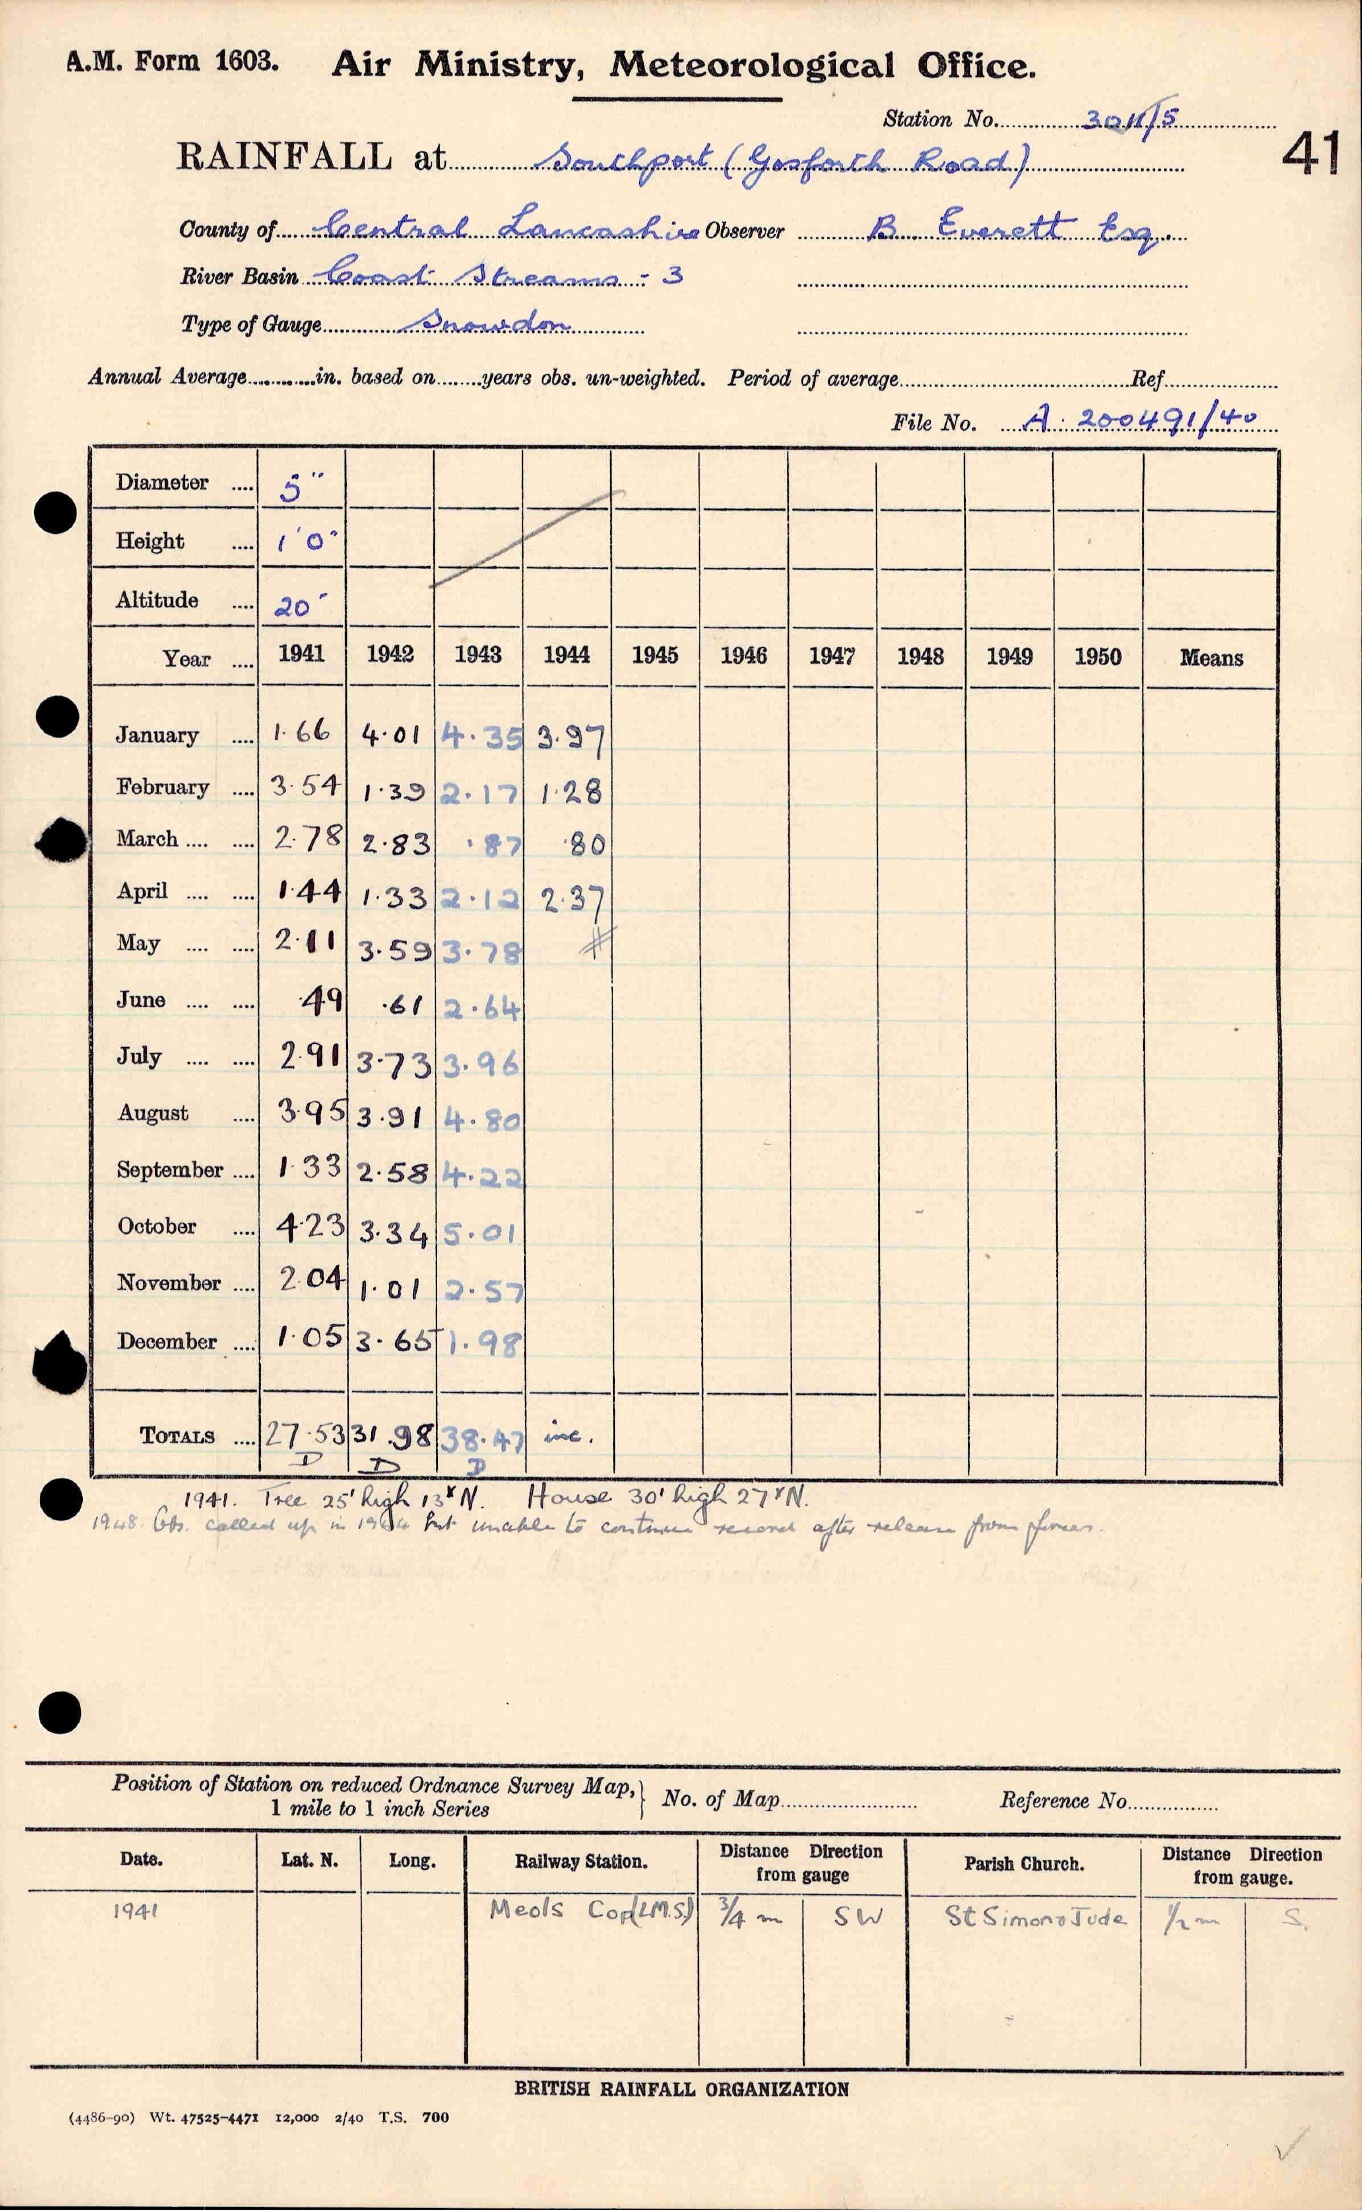 A.M. Form 1603. Air Ministry, Meteorological Office.
Station No. 3011/5
41
RAINFALL at Southport (Gosforth Road)
County of Central Lancashire Observer B. Everett Esq.
River Basin Coast Streams - 3
Type of Gauge Snowdon
Annual Average............in. based on........years obs. un-weighted. Period of average..........Ref..........
File No. A. 200491/40
Diameter .... 5"
Height .... 1'0"
Altitude .... 20'
Year .... 1941 1942 1943 1944 1945 1946 1947 1948 1949 1950 Means
January .... 1.66 4.01 4.35 3.97
February .... 3.54 1.39 2.17 1.28
March .... .... 2.78 2.83 .87 .80
April .... .... 1.44 1.33 2.12 2.37
May .... .... 2.11 3.59 3.78
June .... .... .49 .61 2.64
July .... .... 2.91 3.73 3.96
August .... 3.95 3.91 4.80
September .... 1.33 2.58 4.22
October .... 4.23 3.34 5.01
November .... 2.04 1.01 2.57
December .... 1.05 3.65 1.98
TOTALS .... 27.53 31.98 38.47 inc.
D D D
1941. Tree 25' high 13x N. House 30' high 27x N.
1948. Obs. called up in 1944 but unable to continue record after release from forces.
Position of Station on reduced Ordnance Survey Map, } No. of Map.......... Reference No..........
1 mile to 1 inch Series
Date. Lat. N. Long. Railway Station. Distance Direction from gauge Parish Church. Distance Direction from gauge.
1941 Meols Cop (L.M.S.) 3/4 m SW St Simon & Jude 1/2 m S.
BRITISH RAINFALL ORGANIZATION
(4486-90) Wt. 47525-4471 12,000 2/40 T.S. 700